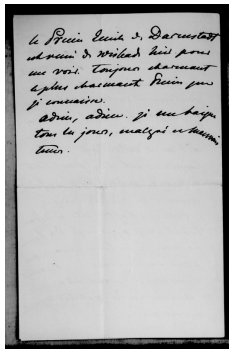 le Prince Emile de Darmstadt
est venu de Wiesbade hier pour
me voir. toujours charmant
le plus charmant Prince que
je connaisse.
adieu, adieu. je me baigne
tous les jours, malgré ce mauvais
tems.